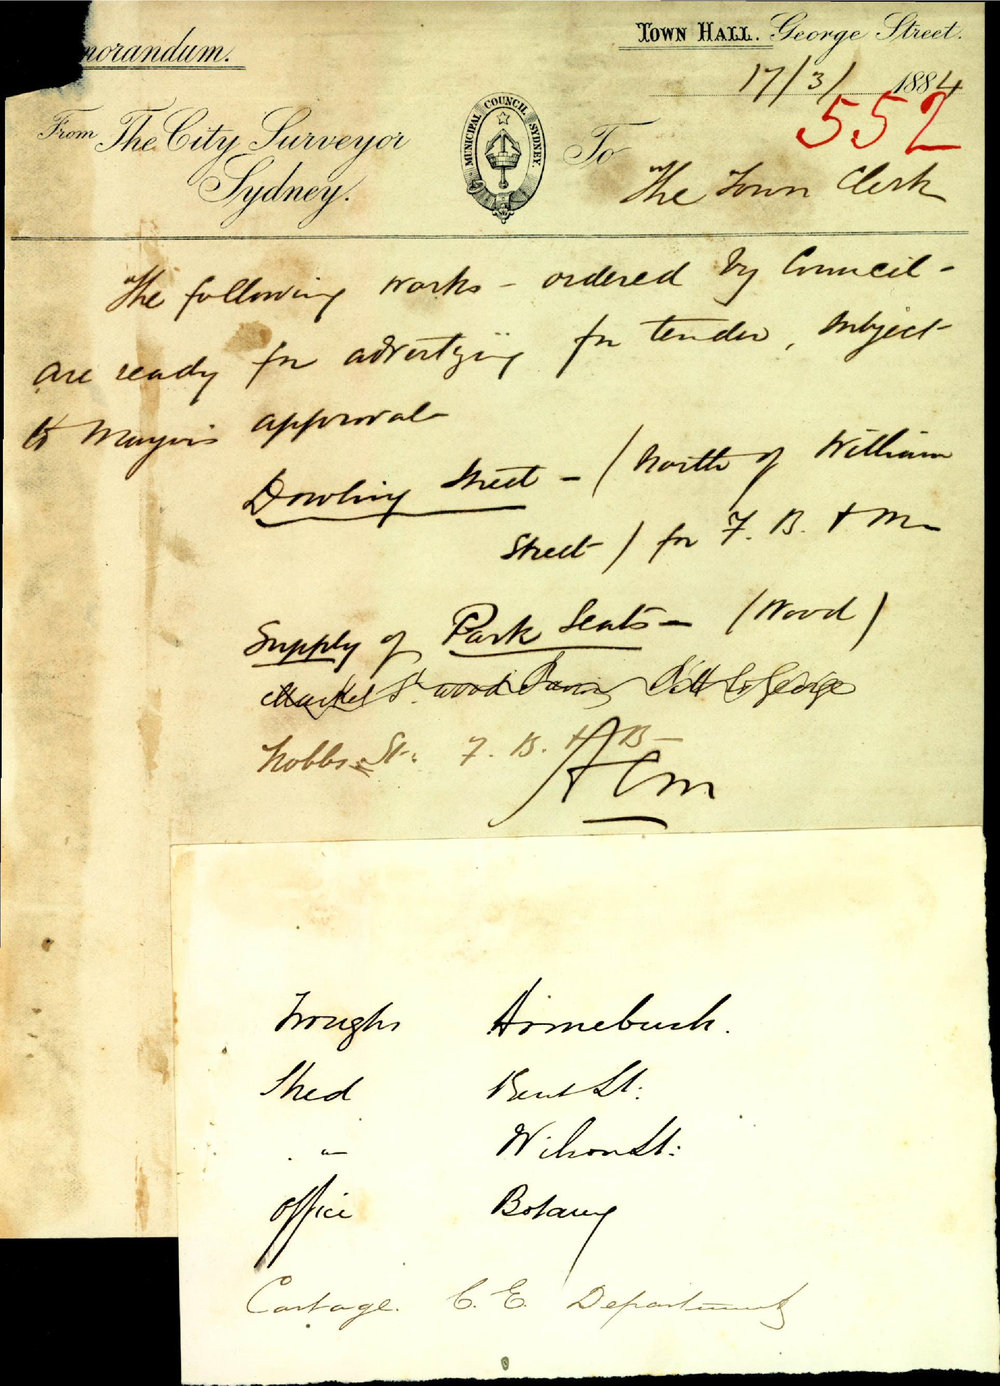 morandum.
Town Hall. George Street.
17/3/ 1884
552
From The City Surveyor
Sydney.
MUNICIPAL COUNCIL SYDNEY.
To
The Town Clerk
The following works - ordered by Council -
are ready for advertizing for tender, subject
to Mayor's approval
Dowling Street - (North of William
Street) for F. B. & M
Supply of Park Seats - (Wood)
Market St wood Paving Pitt to George
Hobbs St. F. B. & B
ACM
Troughs Homebush.
Shed Bent St.
" Wilson St.
Office Botany
Cartage. C. E. Department